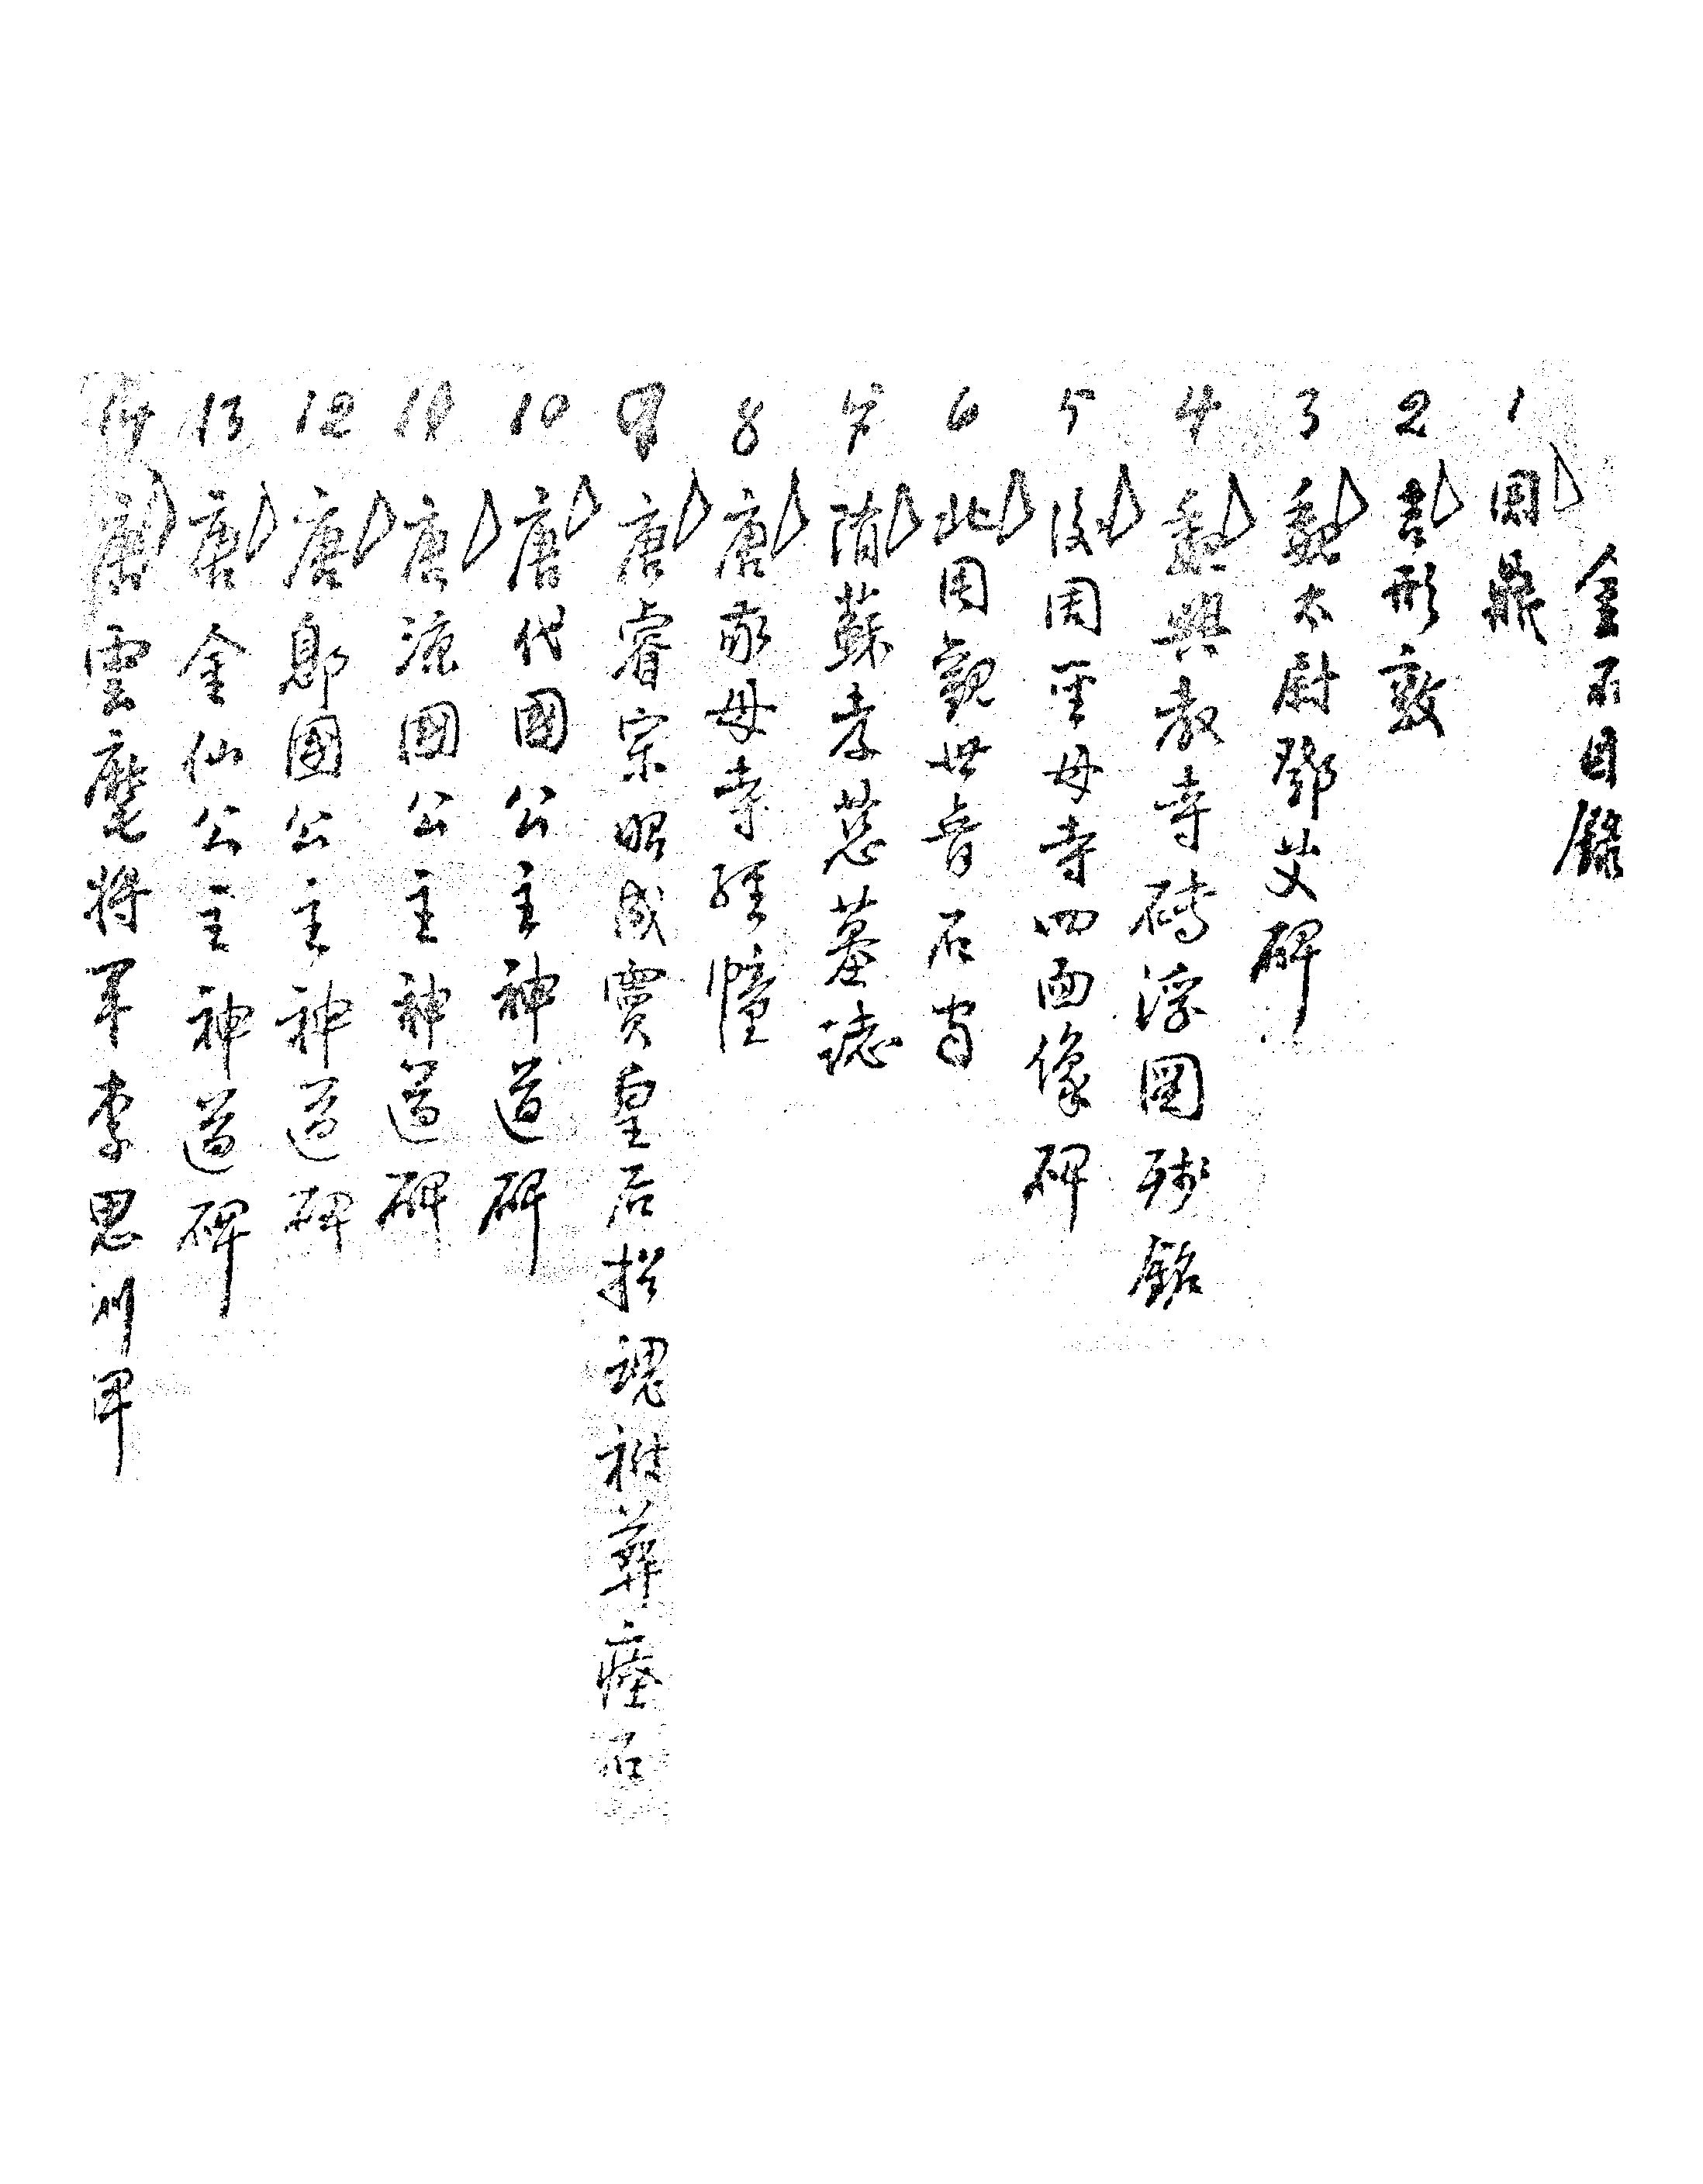 金石目錄
1 周鼎
2 吉形敦
3 魏太尉鄧艾碑
4 魏興教寺磚浮圖殘銘
5 後周聖母寺四面像碑
6 北周觀世音石
7 隋蘇孝慈墓誌
8 唐敬母寺經幢
9 唐睿宗昭成竇皇后招魂祔葬瘞石
10 唐代國公主神道碑
11 唐涼國公主神道碑
12 唐鄎國公主神道碑
13 唐金仙公主神道碑
14 唐雲麾將軍李思訓碑